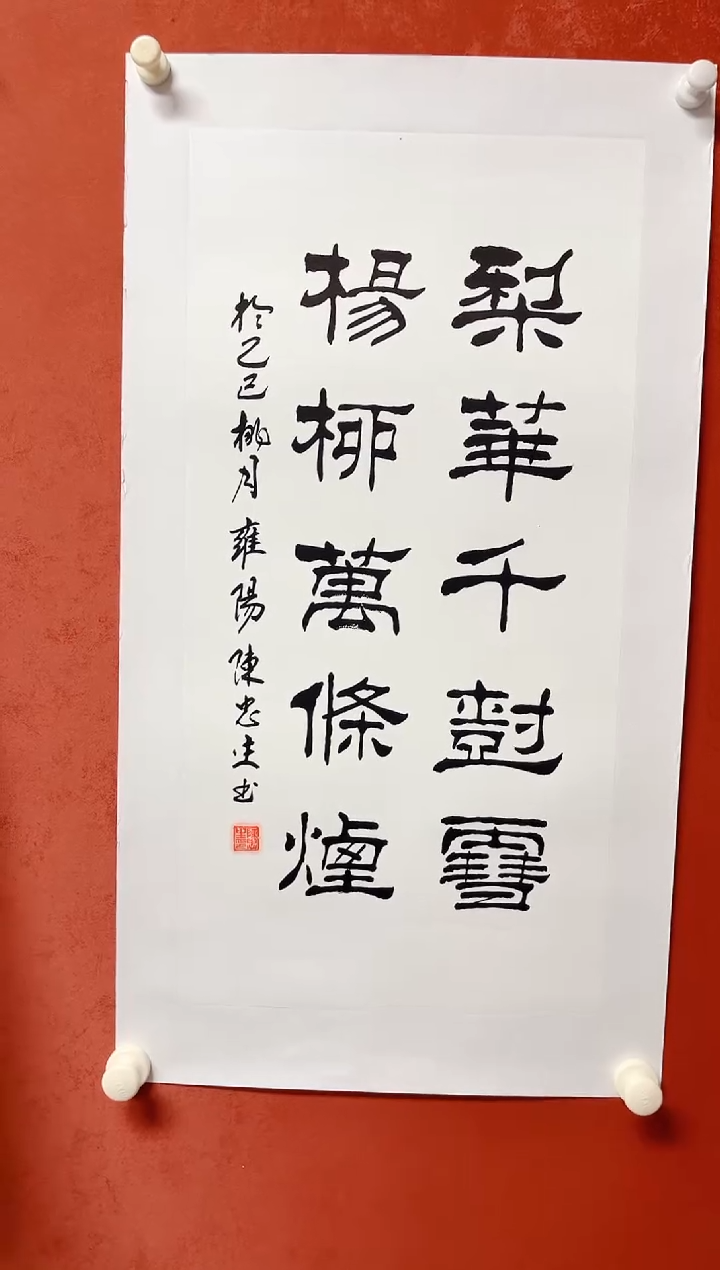 梨華千樹雪
楊柳萬條煙
於乙巳桃月雍陽陳忠生书